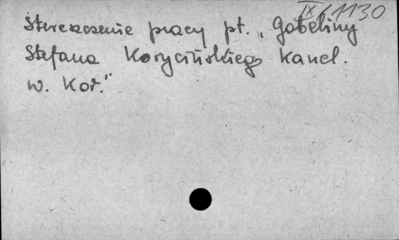 IX/61130
Streszczenie pracy pt. „Gobeliny
Stefana Korycińskiego kancl.
w. Kor."